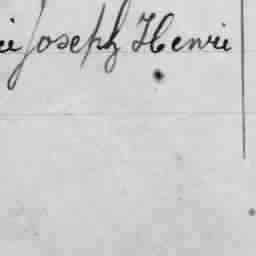 Joseph Henri